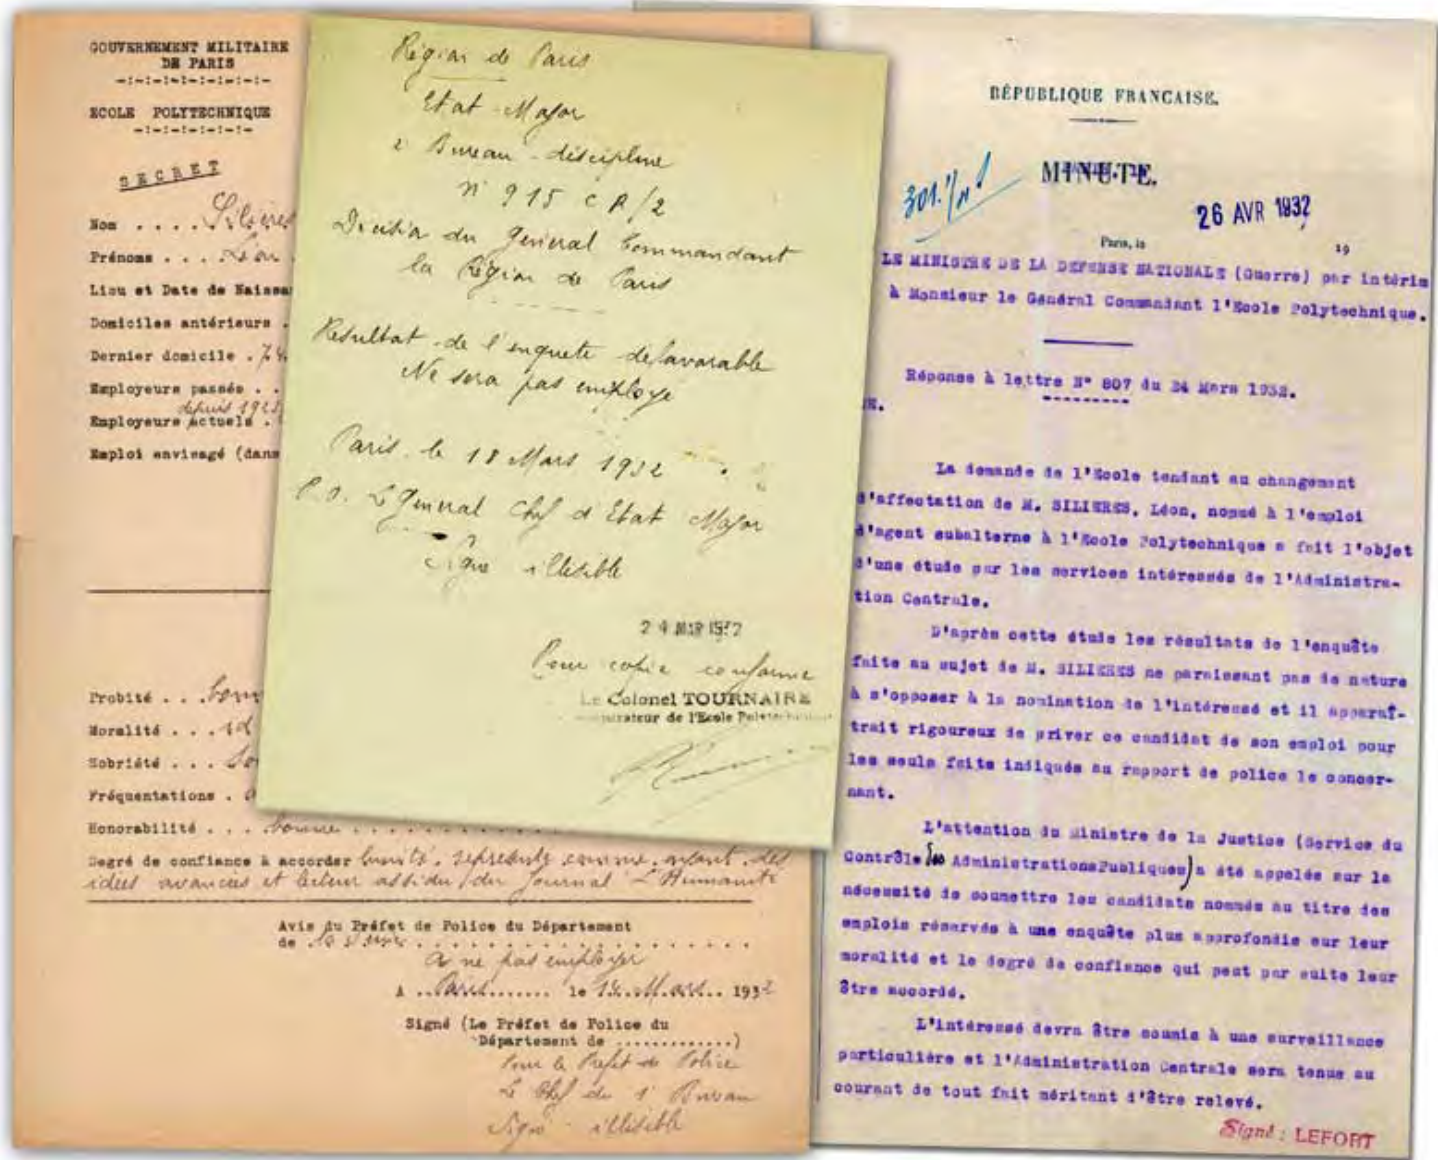 GOUVERNEMENT MILITAIRE
DE PARIS
-:-:-:-:-:-:-:-
ECOLE POLYTECHNIQUE
-:-:-:-:-:-:-
SECRET
Nom . . . . Silières
Prénoms . . . Léon
Lieu et Date de Naissa
Domiciles antérieurs .
Dernier domicile . 74
Employeurs passés . .
depuis 1925
Employeurs actuels .
Emploi envisagé (dans
Probité . . . bonne
Moralité . . . id
Sobriété . . .
Fréquentations .
Honorabilité . . . bonne . . . . . . . . . .
Degré de confiance à accorder limité. représenté comme ayant des
idées avancées et lecteur assidu du journal L'Humanité
Avis du Préfet de Police du Département
de la Seine . . . . . . . . . . . . . . . . .
A ne pas employer
A ..Paris....... le 14 Mars.. 1932
Signé (Le Préfet de Police du
Département de .............)
Pour le Préfet de Police
Le Chef du 1 Bureau
Signé illisible
Région de Paris
Etat-Major
2 Bureau-discipline
n° 915 CR/2
Décision du Général Commandant
la Région de Paris
Résultat de l'enquete defavorable
Ne sera pas employé
Paris le 18 Mars 1932
P.O. Le General Chef d'Etat Major
Signé illisible
24 MAR 1932
Pour copie conforme
Le Colonel TOURNAIRE
Administrateur de l'Ecole Polytechnique
RÉPUBLIQUE FRANCAISE.
MINUTE.
26 AVR 1932
Paris, le 19
LE MINISTRE DE LA DEFENSE NATIONALE (Guerre) par intérim
à Monsieur le Général Commandant l'Ecole Polytechnique.
Réponse à lettre N° 807 du 24 Mars 1932.
E.
La demande de l'Ecole tendant au changement
d'affectation de M. SILIERES, Léon, nommé à l'emploi
d'agent subalterne à l'Ecole Polytechnique a fait l'objet
d'une étude par les services intéressés de l'Administra-
tion Centrale.
D'après cette étude les résultats de l'enquête
faite au sujet de M. SILIERES ne paraissant pas de nature
à s'opposer à la nomination de l'intéressé et il apparaî-
trait rigoureux de priver ce candidat de son emploi pour
les seuls faits indiqués au rapport de police le concer-
nant.
L'attention du Ministre de la Justice (Service du
Contrôle des AdministrationsPubliques) a été appelée sur la
nécessité de soumettre les candidats nommés au titre des
emplois réservés à une enquête plus approfondie sur leur
moralité et le degré de confiance qui peut par suite leur
être accordé.
L'intéressé devra être soumis à une surveillance
particulière et l'Administration Centrale sera tenue au
courant de tout fait méritant d'être relevé.
Signé : LEFORT